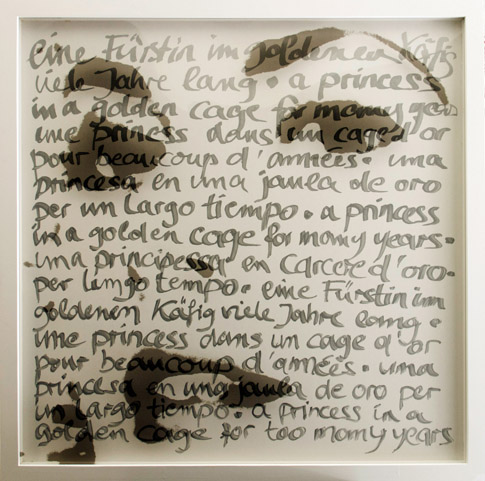 eine Fürstin im goldenen Käfig
viele Jahre lang • a princess
in a golden cage for momy years
une princess dans un cage d'or
pour beaucoup d'années • uma
princesa en una jaula de oro
per un largo tiempo • a princess
in a golden cage for momy years •
una principessa en carcere d'oro •
per lungo tempo • eine Fürstin im
goldenen Käfig viele Jahre lang •
une princess dans un cage d'or
pour beaucoup d'années • uma
princesa en una jaula de oro per
un largo tiempo • a princess in a
golden cage for too momy years